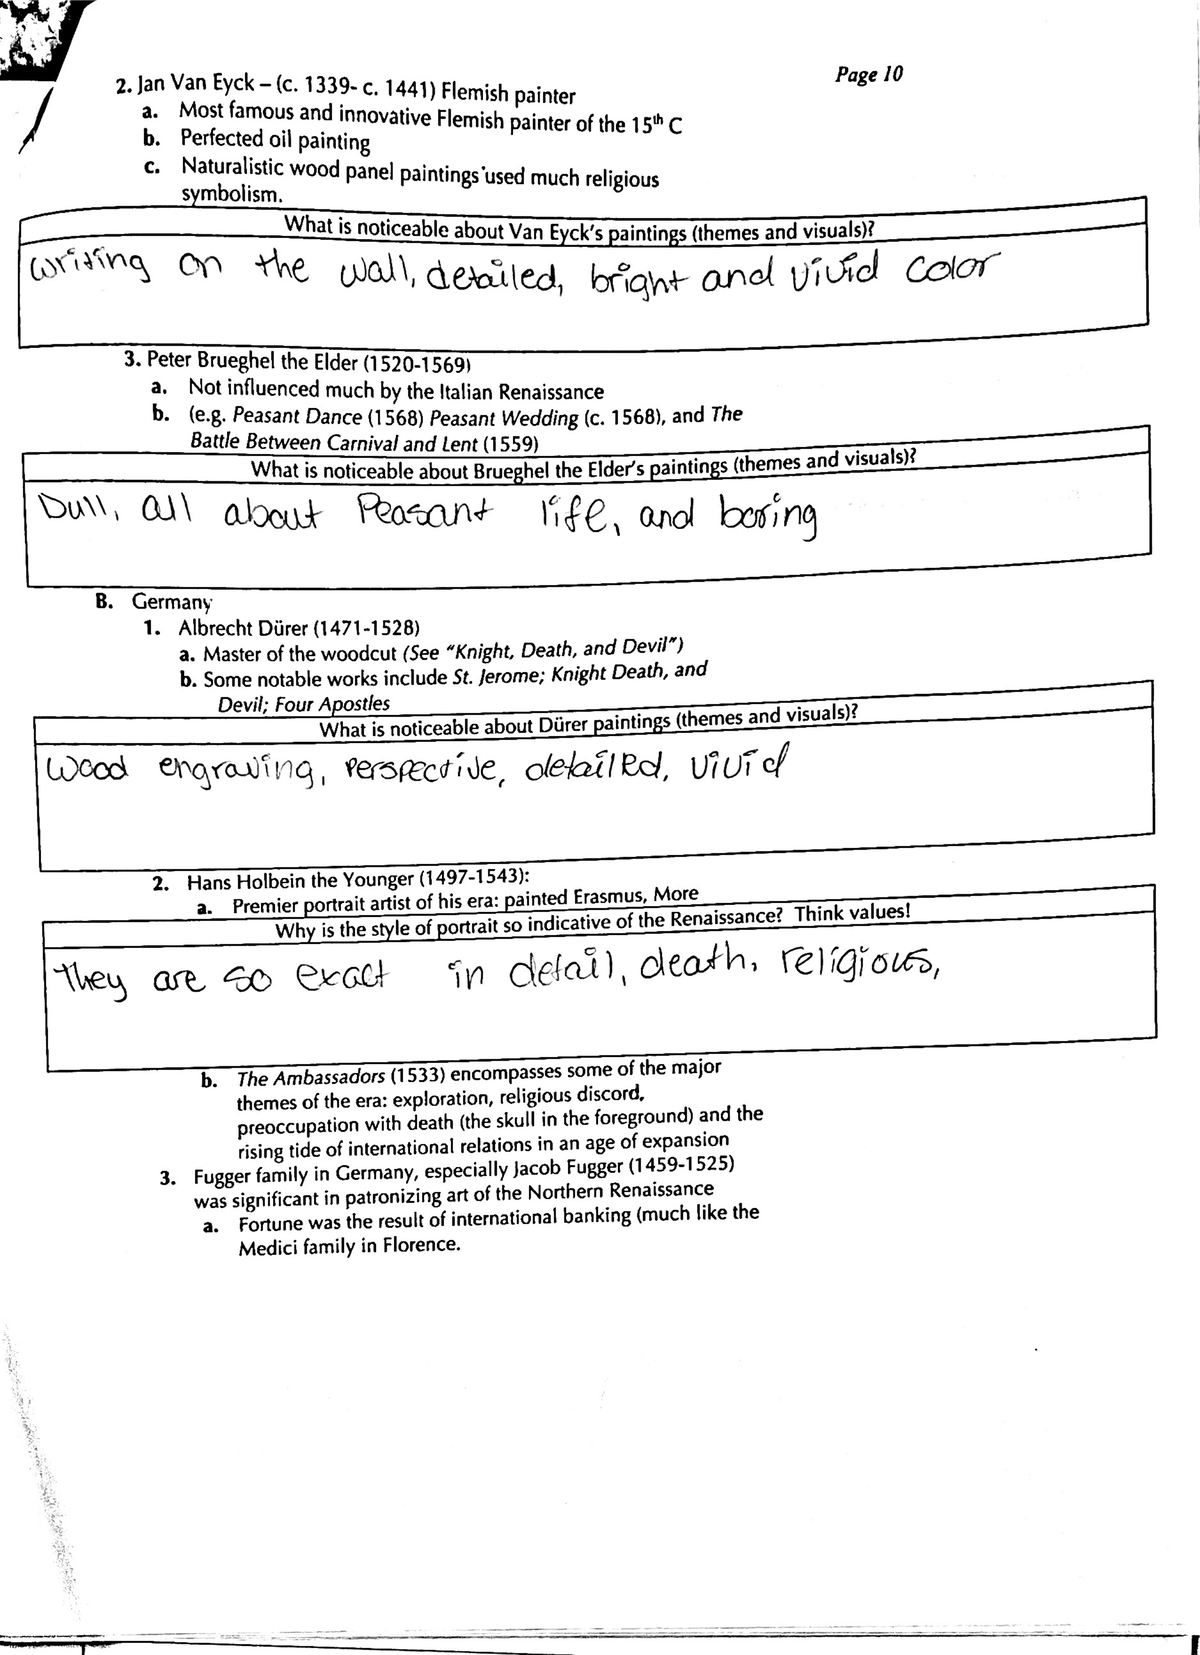 Page 10
2. Jan Van Eyck – (c. 1339- c. 1441) Flemish painter
a. Most famous and innovative Flemish painter of the 15th C
b. Perfected oil painting
c. Naturalistic wood panel paintings used much religious
symbolism.
What is noticeable about Van Eyck's paintings (themes and visuals)?
writing on the wall, detailed, bright and vivid color
3. Peter Brueghel the Elder (1520-1569)
a. Not influenced much by the Italian Renaissance
b. (e.g. Peasant Dance (1568) Peasant Wedding (c. 1568), and The
Battle Between Carnival and Lent (1559)
What is noticeable about Brueghel the Elder's paintings (themes and visuals)?
Dull, all about Peasant life, and boring
B. Germany
1. Albrecht Dürer (1471-1528)
a. Master of the woodcut (See "Knight, Death, and Devil")
b. Some notable works include St. Jerome; Knight Death, and
Devil; Four Apostles
What is noticeable about Dürer paintings (themes and visuals)?
Wood engraving, perspective, detailed, vivid
2. Hans Holbein the Younger (1497-1543):
a. Premier portrait artist of his era: painted Erasmus, More
Why is the style of portrait so indicative of the Renaissance? Think values!
They are so exact in detail, death, religious,
b. The Ambassadors (1533) encompasses some of the major
themes of the era: exploration, religious discord,
preoccupation with death (the skull in the foreground) and the
rising tide of international relations in an age of expansion
3. Fugger family in Germany, especially Jacob Fugger (1459-1525)
was significant in patronizing art of the Northern Renaissance
a. Fortune was the result of international banking (much like the
Medici family in Florence.